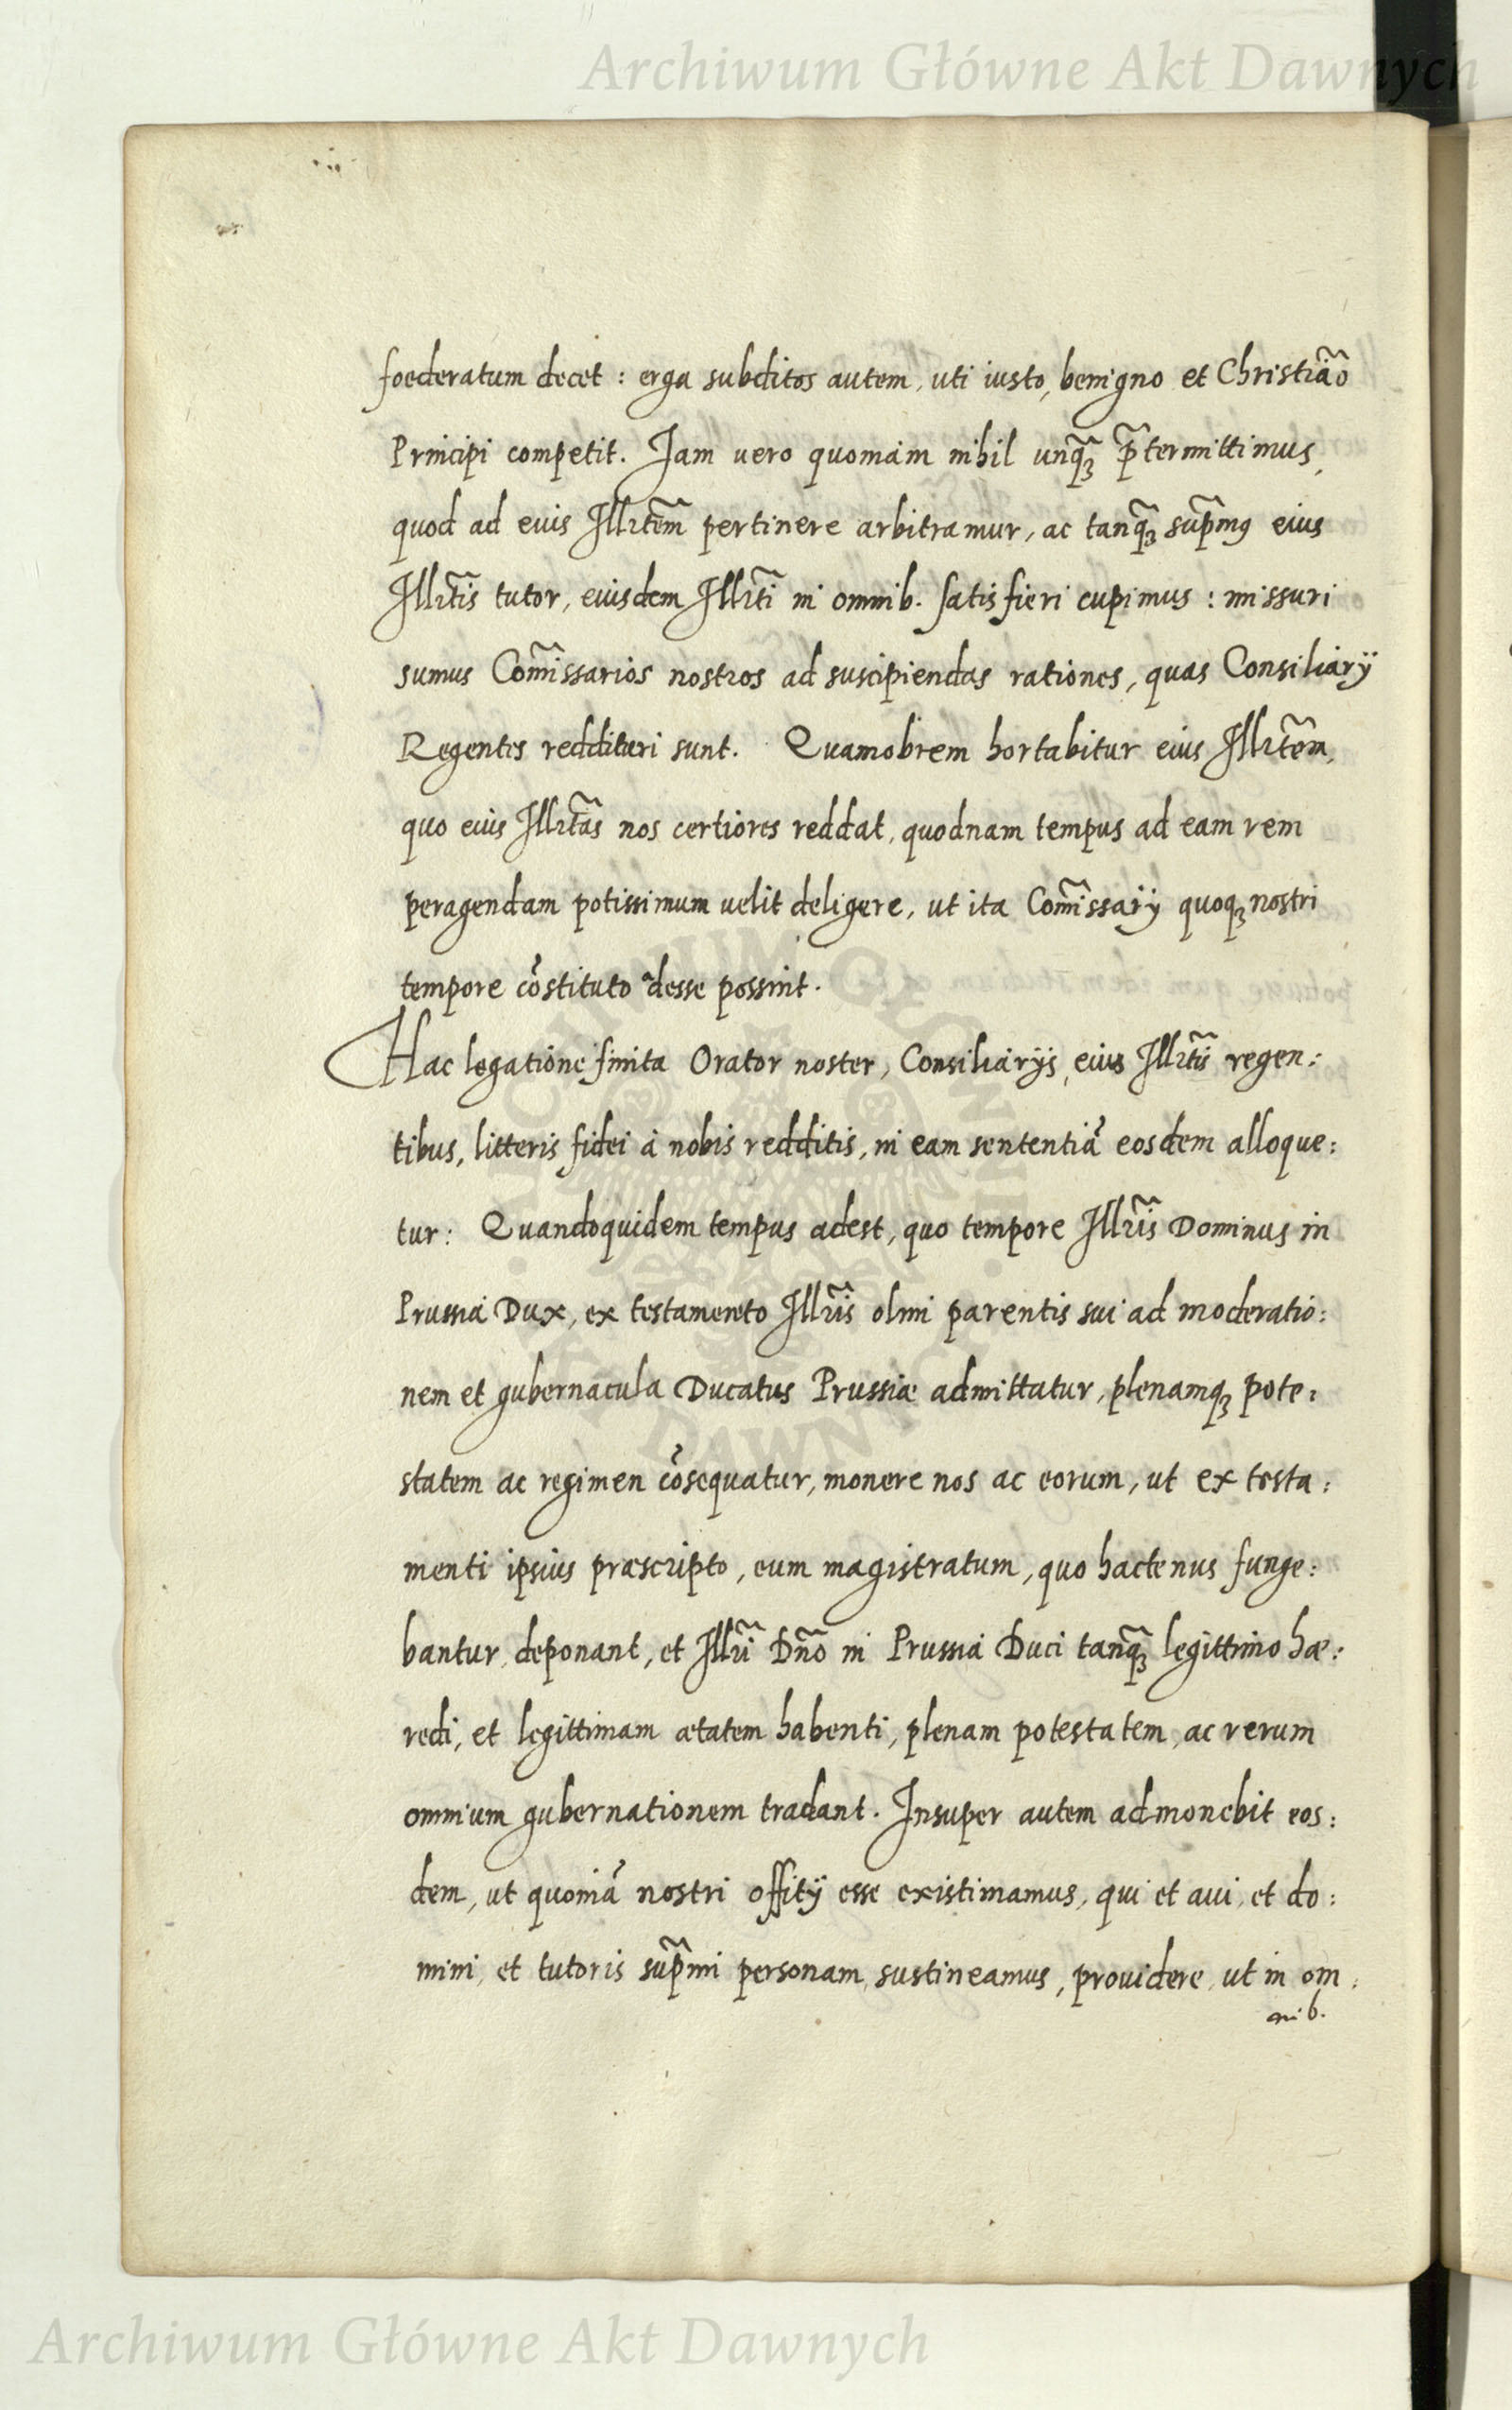 Archiwum Główne Akt Dawnych
foederatum decet : erga subditos autem, uti iusto, benigno et Christiãõ
Principi competit. Jam uero quoniam nihil unq̃ꝫ p̃termittimus,
quod ad eius Illr̃tem pertinere arbitramur, ac tanq̃ꝫ sup̃mꝯ eius
Illr̃tis tutor, eiusdem Illr̃ti in omnib. satisfieri cupimus : missuri
sumus Com̃issarios nostros ad suscipiendas rationes, quas Consiliarÿ
Regentes reddituri sunt. Quamobrem hortabitur eius Illr̃tem,
quo eius Illr̃tas nos certiores reddat, quodnam tempus ad eam rem
peragendam potissimum uelit deligere, ut ita Com̃issarÿ quoqꝫ nostri
tempore cõstituto adesse possint.
Hac legatione finita Orator noster, Consiliarÿs, eius Illr̃tis regen:
tibus, litteris fidei à nobis redditis, in eam sententiã eosdem alloque:
tur: Quandoquidem tempus adest, quo tempore Illr̃is Dominus in
Prussia Dux, ex testamento Illr̃is olim parentis sui ad moderatio:
nem et gubernacula Ducatus Prussiæ admittatur, plenamqꝫ pote:
statem ac regimen cõsequatur, monere nos ac eorum, ut ex testa:
menti ipsius præscripto, eum magistratum, quo hactenus funge:
bantur, deponant, et Illr̃i Dño in Prussia Duci tanq̃ꝫ legittimo hæ:
redi, et legittimam ætatem habenti, plenam potestatem, ac rerum
omnium gubernationem tradant. Insuper autem admonebit eos:
dem, ut quoniã nostri offitÿ esse existimamus, qui et aui, et do:
mini, et tutoris sup̃mi personam sustineamus, prouidere, ut in om:
nib.
Archiwum Główne Akt Dawnych